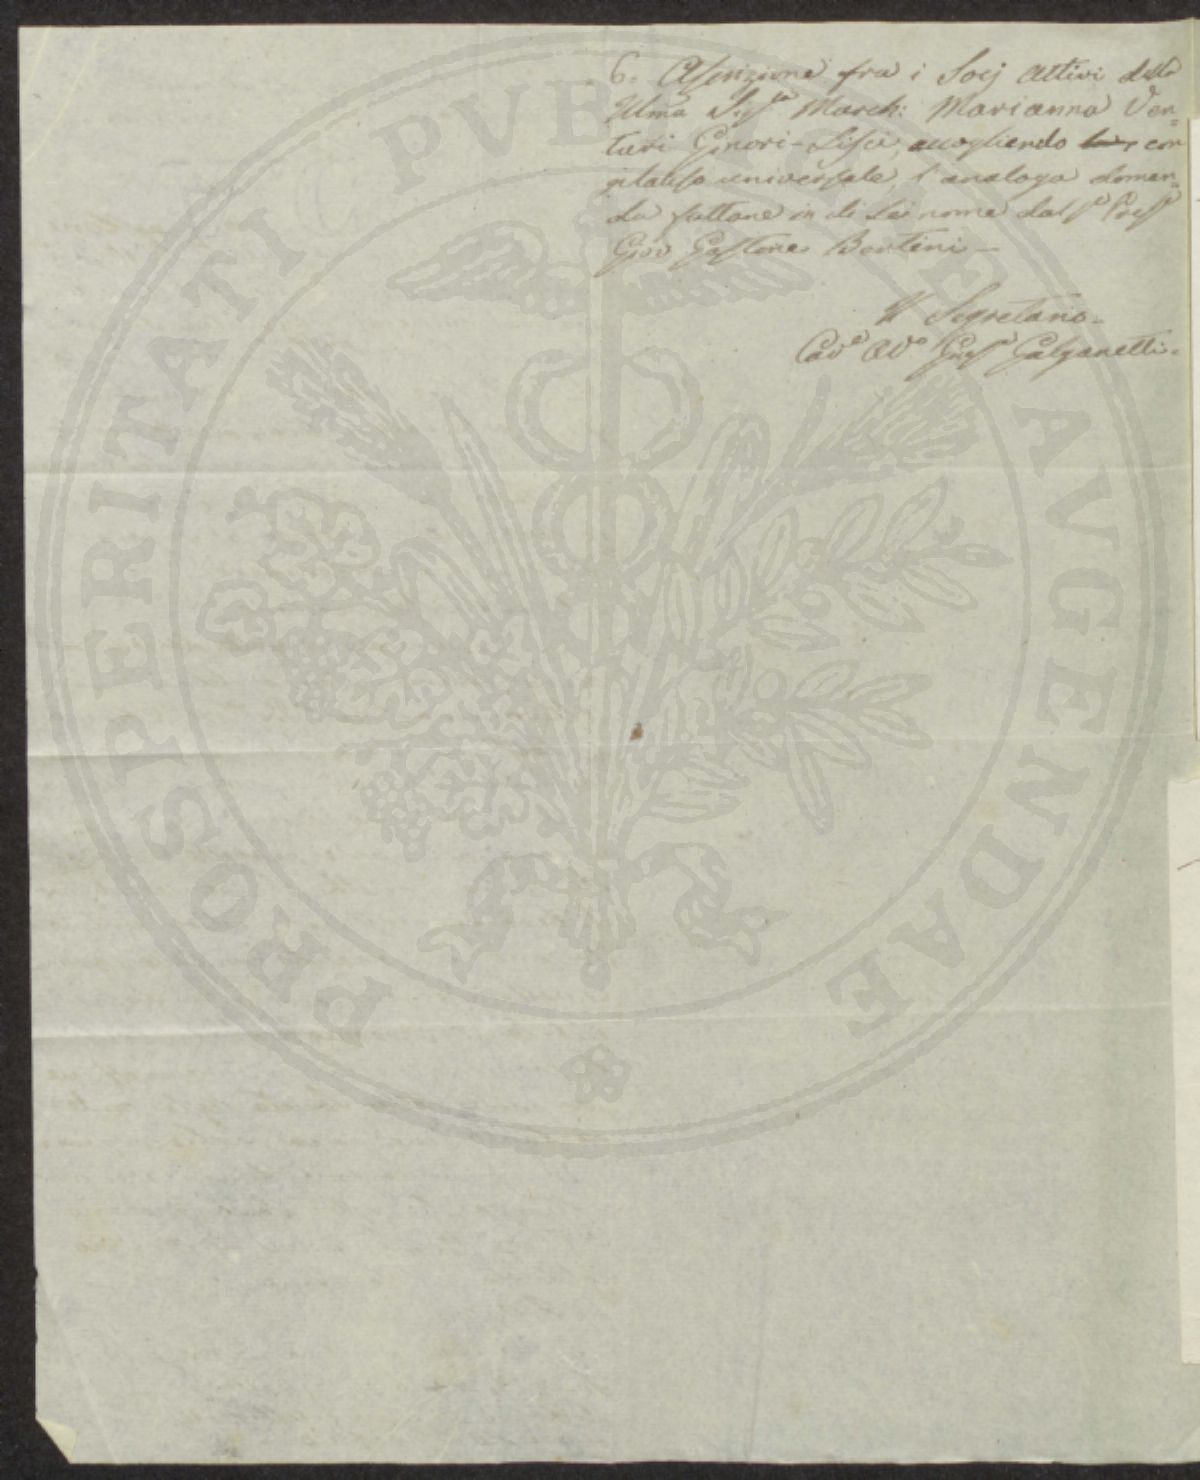 6. Ascrizione fra i Socj Attivi della
Illma Sigra March: Marianna Ven=
turi Ginori-Lisci, accogliendo con
universale l'analoga doman=
da fattane in di Lei nome dal
Gio Gastone Bertini —
Il Segretario.
Cave Avo Galganetti.
PROSPERITATI PVBLICAE AVGENDAE